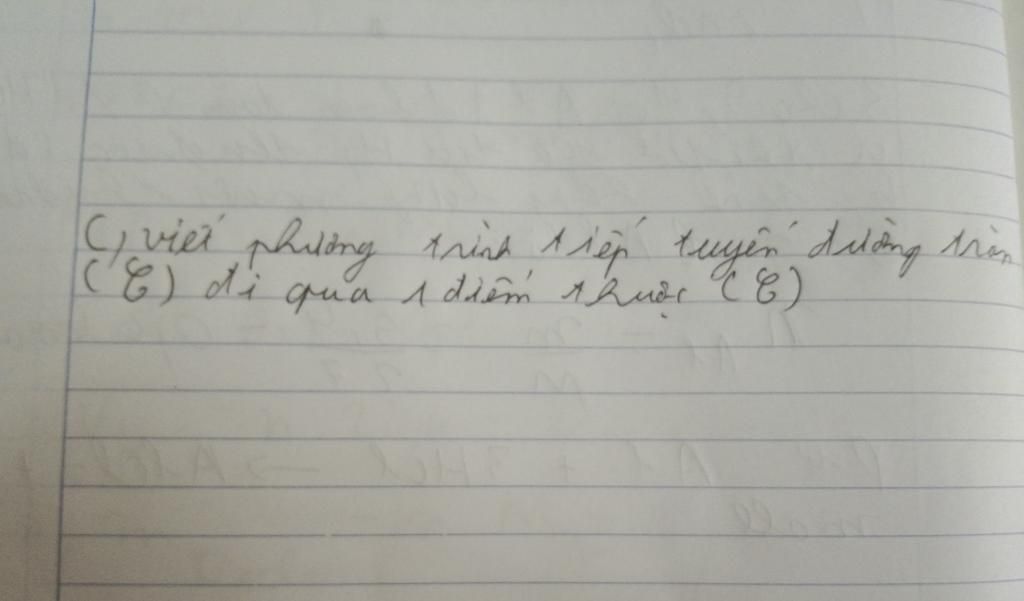 C, viết phương trình tiếp tuyến đường tròn
(C) đi qua 1 điểm thuộc (C)